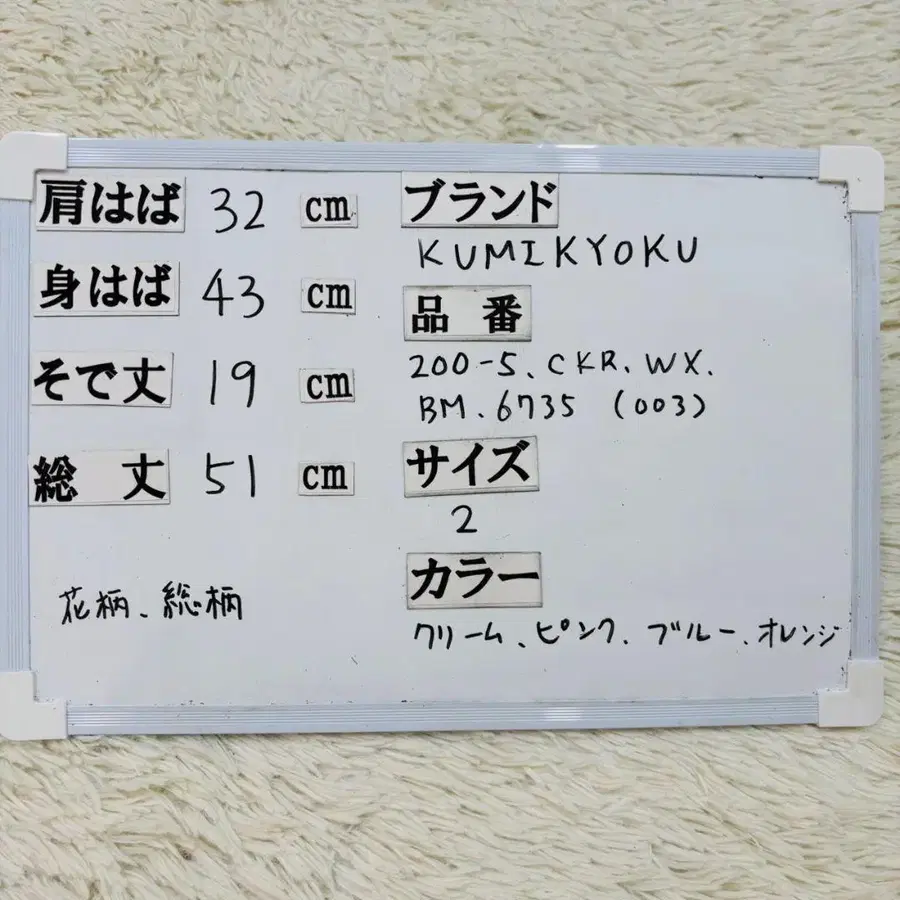 肩はば 32 cm
身はば 43 cm
そで丈 19 cm
総丈 51 cm
花柄、総柄
ブランド
KUMIKYOKU
品番
200-5、CKR、WX.
BM、6735 (003)
サイズ
2
カラー
クリーム、ピンク、ブルー、オレンジ